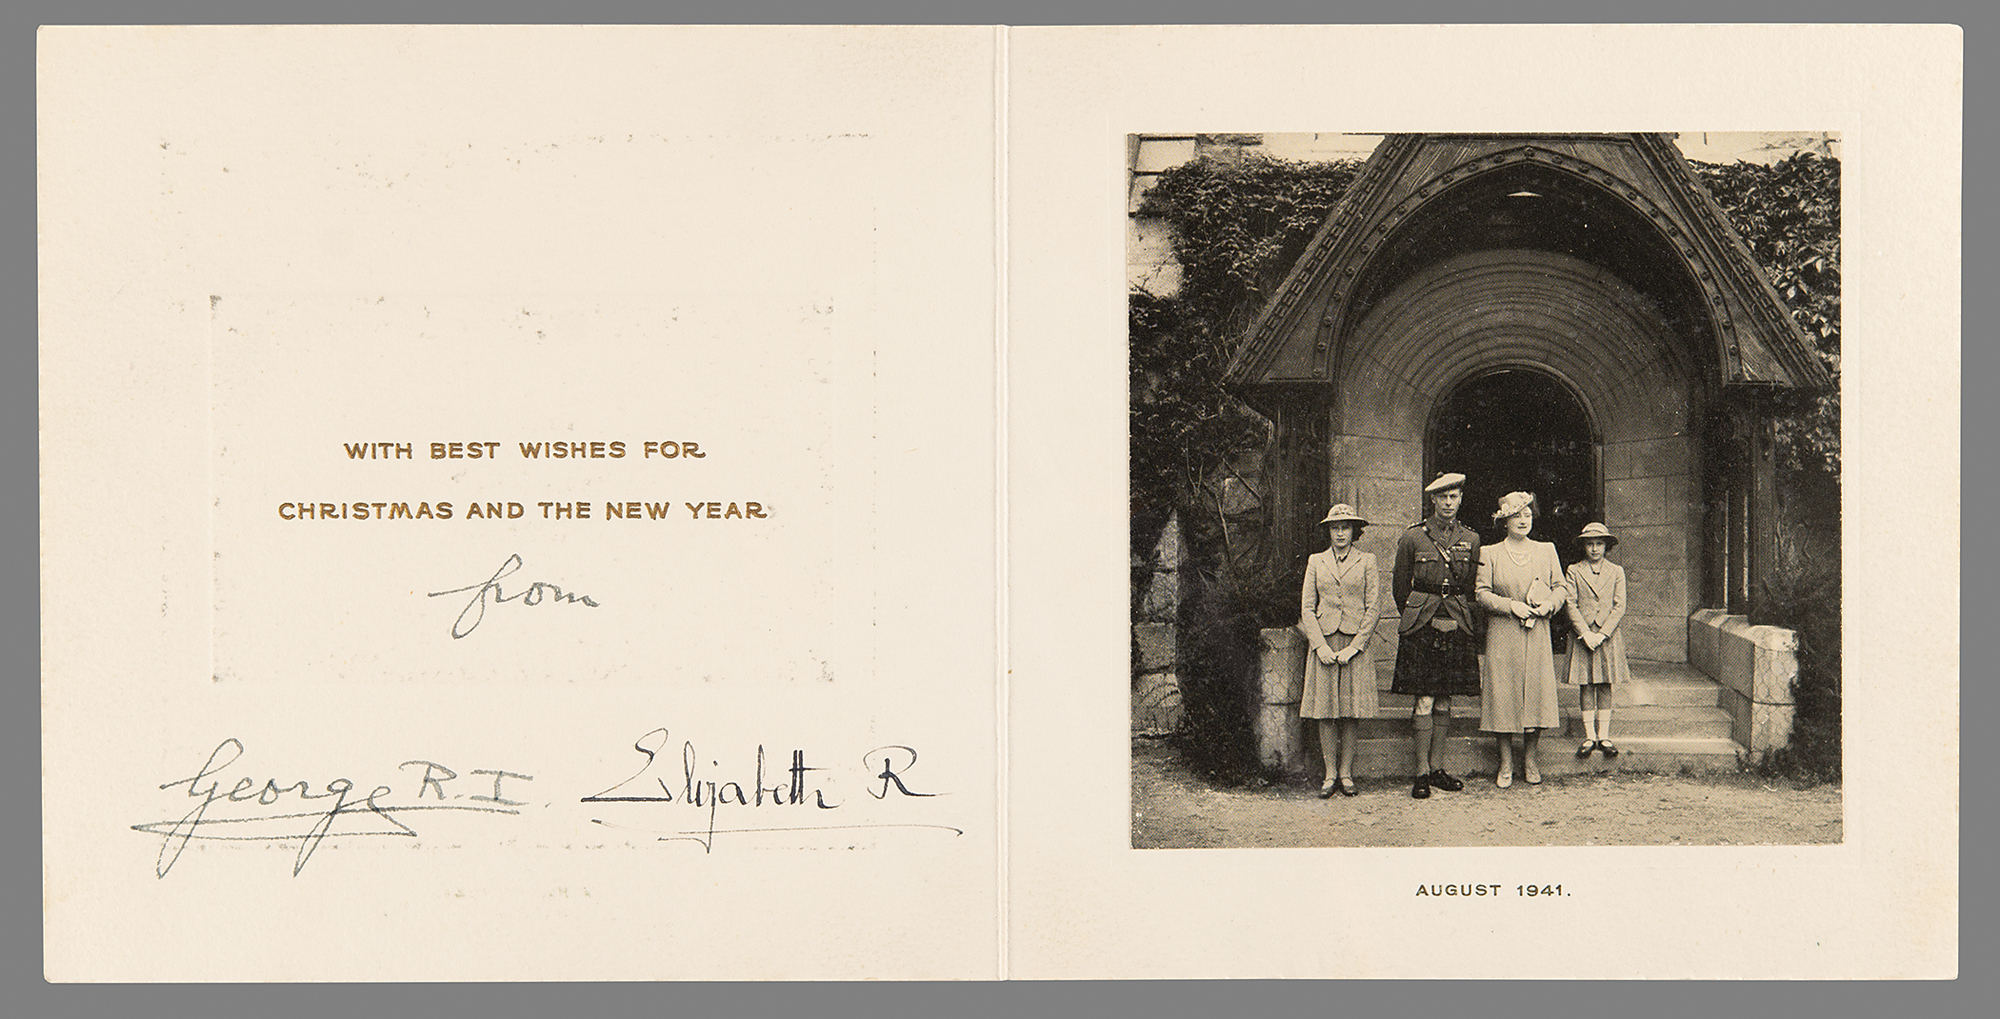 WITH BEST WISHES FOR
CHRISTMAS AND THE NEW YEAR
from
George R.I.
Elizabeth R
AUGUST 1941.